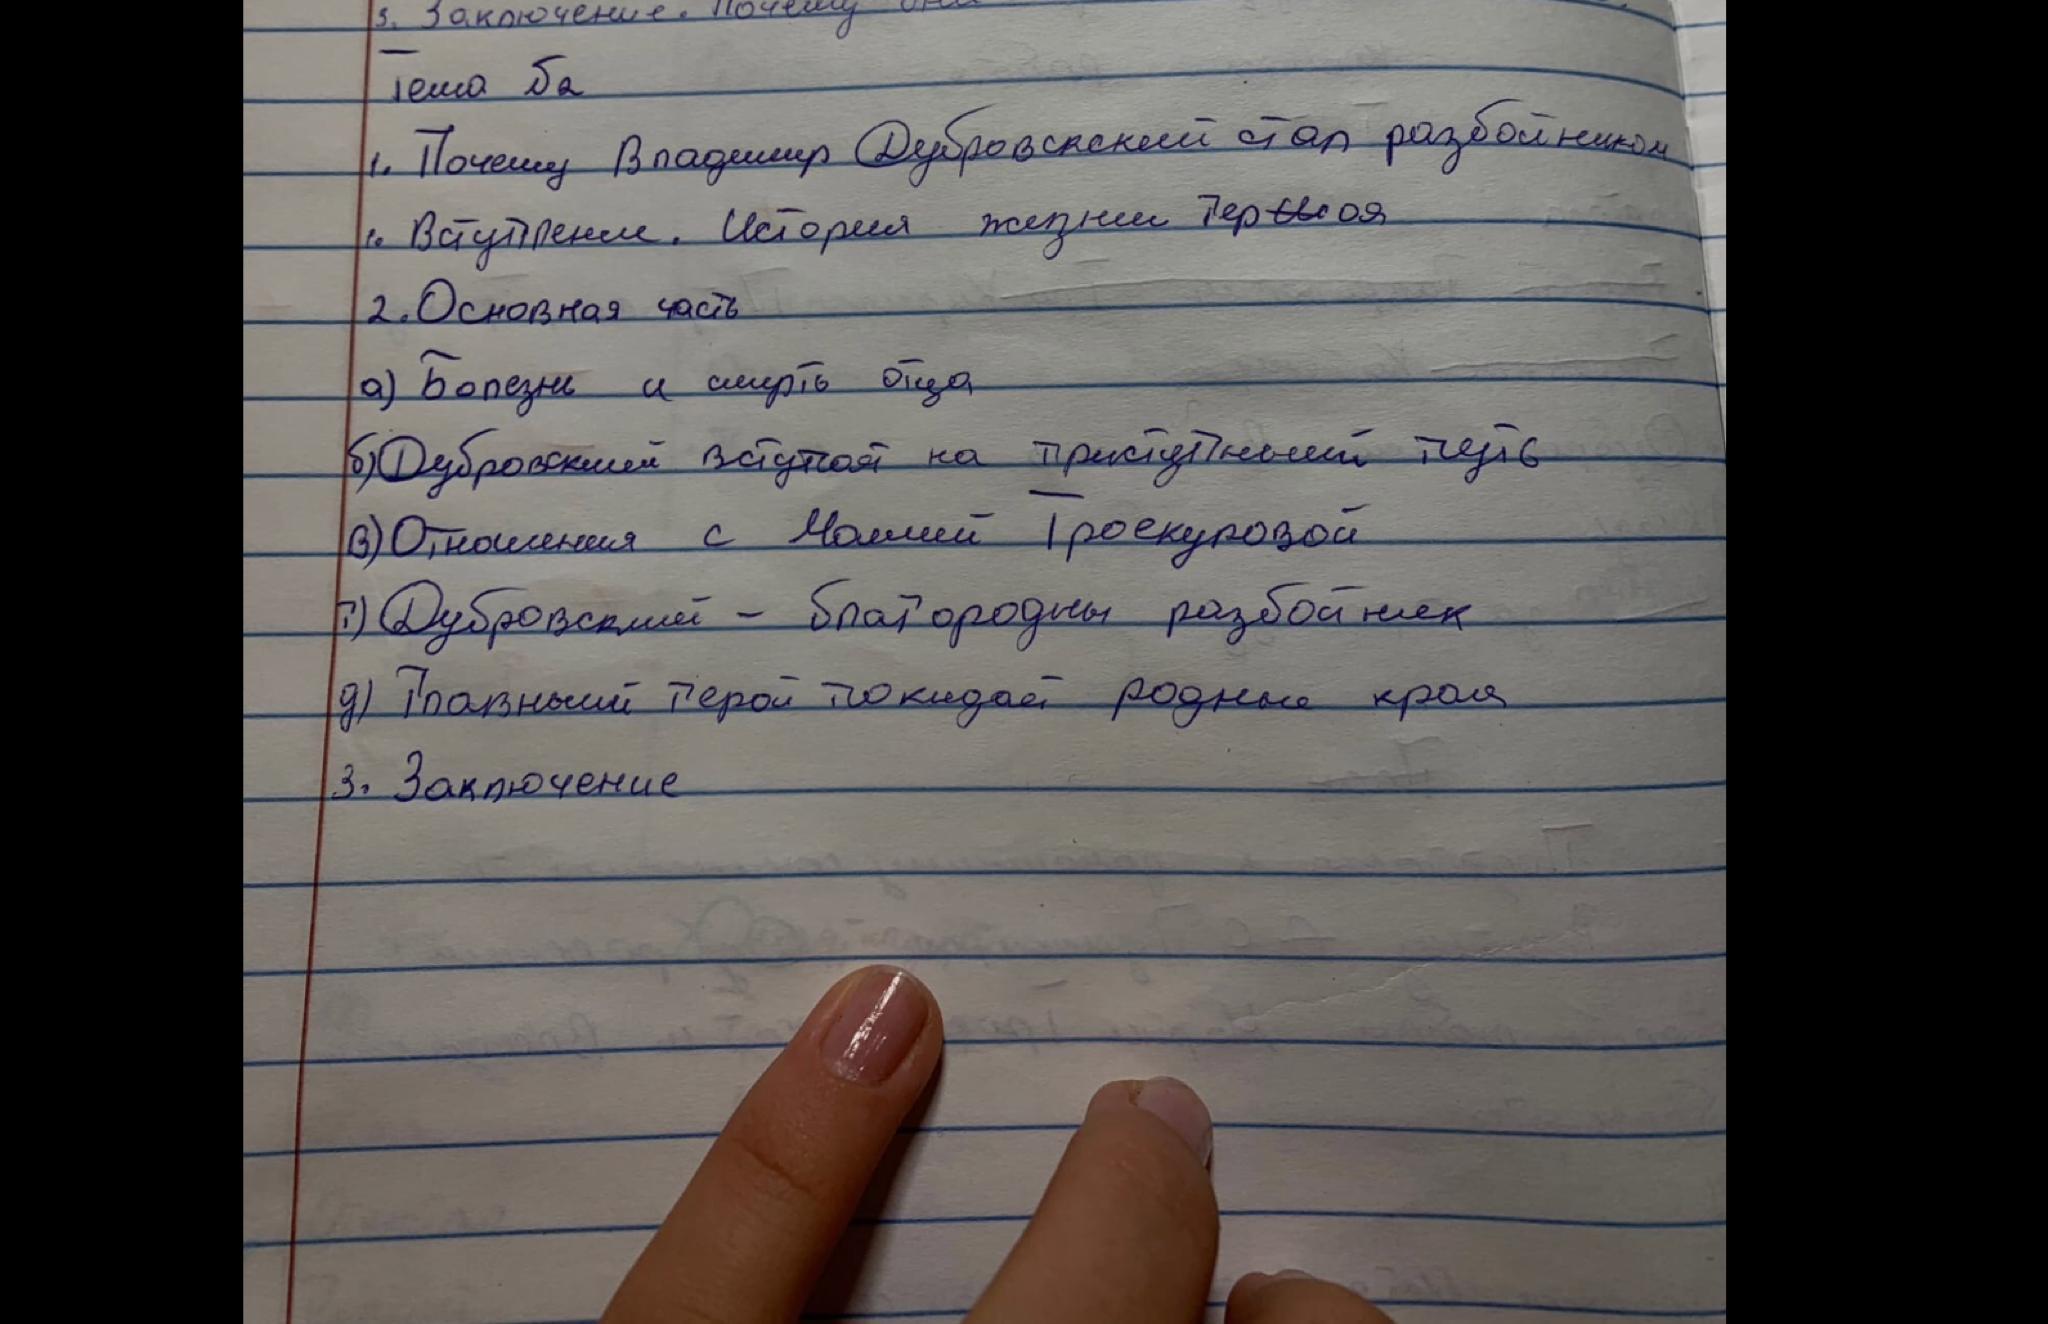 3. Заключение. Почему они
Тема 5а
1. Почему Владимир Дубровскский стал разбойником
1. Вступление. История жизни героя
2. Основная часть
а) Болезнь и смерть отца
б) Дубровский вступает на приступный путь
в) Отношения с Машей Троекуровой
г) Дубровский - благородны разбойник
д) Главный герой покидает родные края
3. Заключение